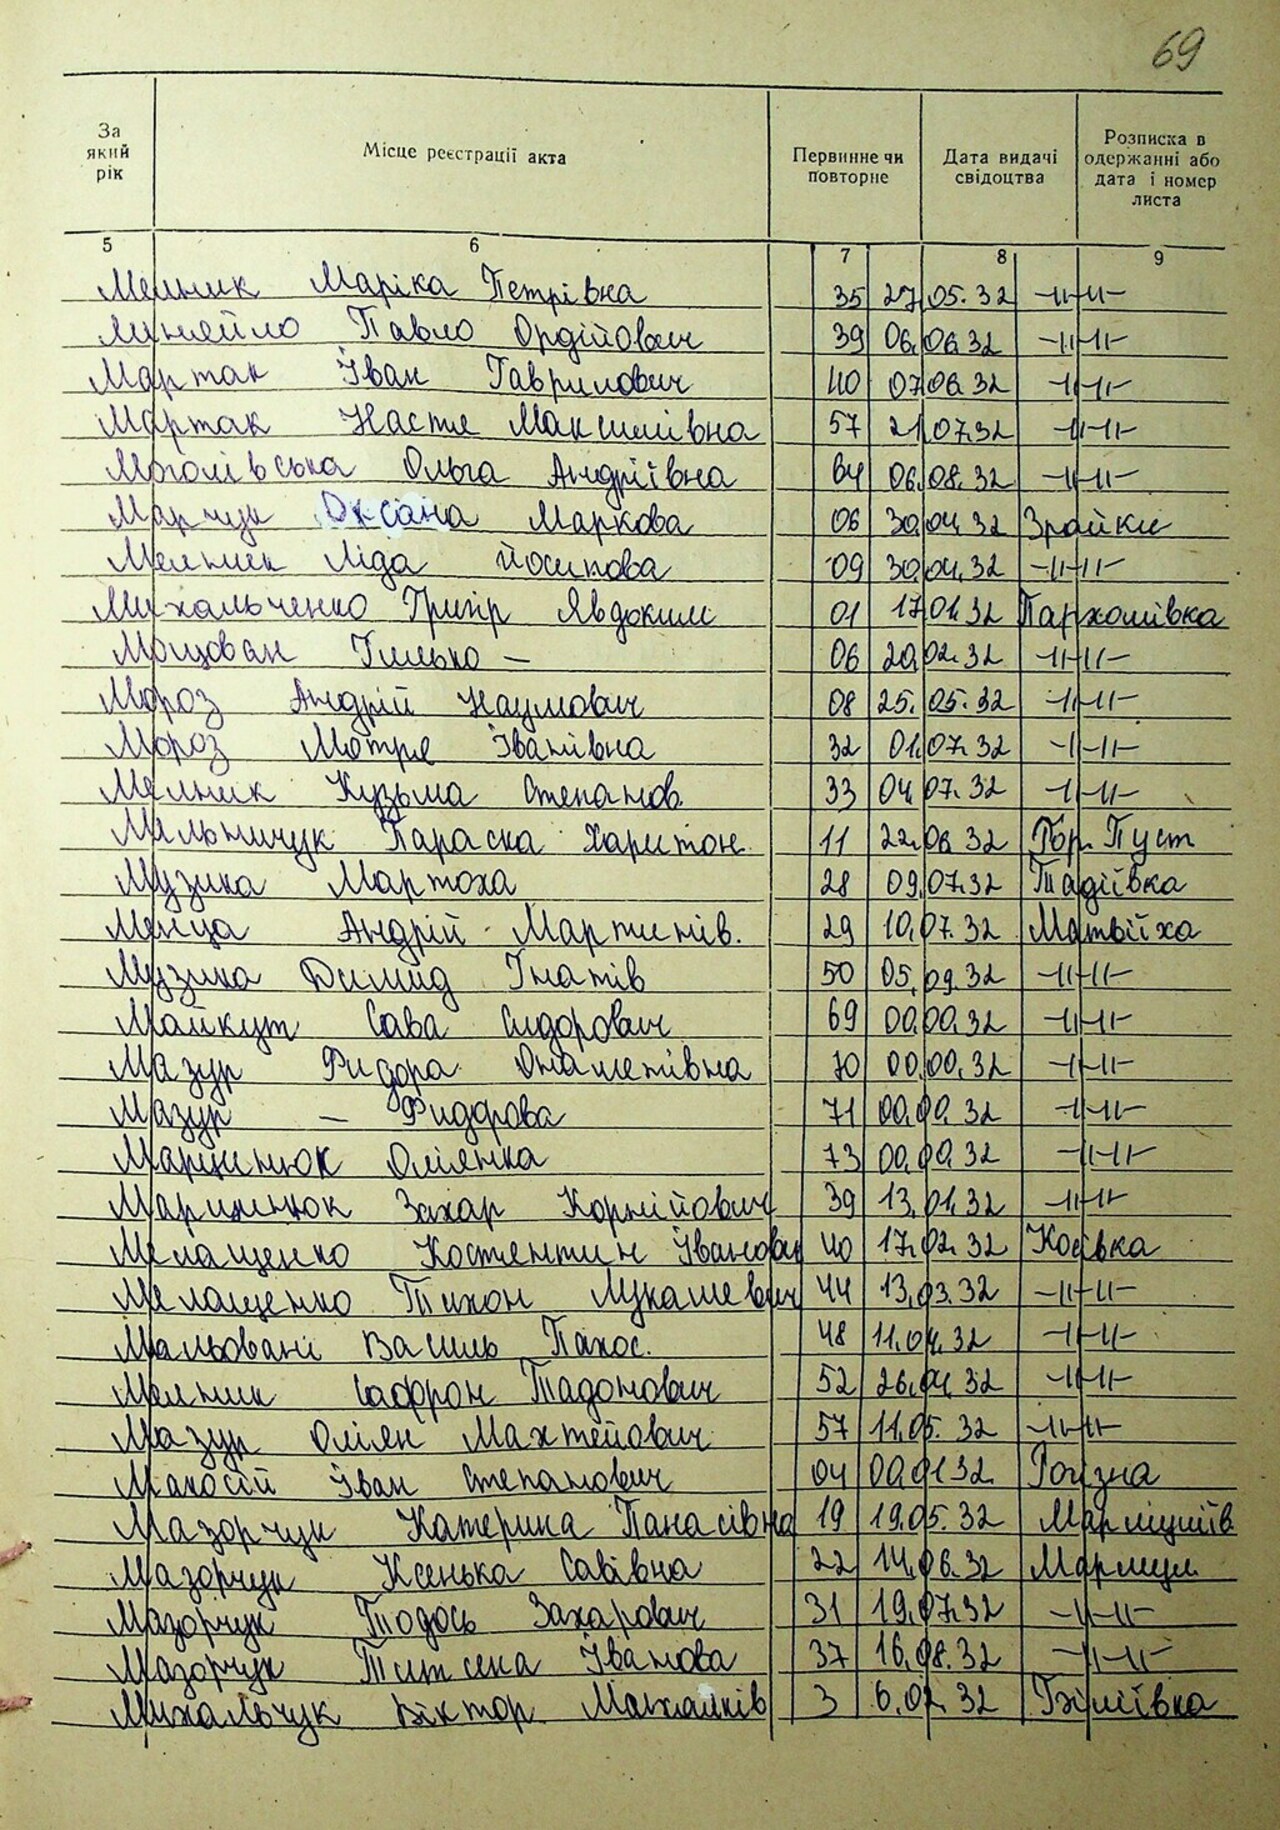 69
За який рік
Місце реєстрації акта
Первинне чи повторне
Дата видачі свідоцтва
Розписка в одержанні або дата і номер листа
5 6 7 8 9
Мельник Маріка Петрівна 35 27.05.32 -11-11-
Павло Ордійович 39 06.06.32 -11-11-
Мартак Іван Гаврилович 40 07.06.32 -11-11-
Мартак Настя Максимівна 57 21.07.32 -11-11-
Моголівська Ольга Андріївна 64 06.08.32 -11-11-
Марчук Оксана Маркова 06 30.04.32 Зрайки
Мельник Ліда Йосипова 09 30.04.32 -11-11-
Михальченко Григір Явдоким 01 17.01.32 Пархомівка
Гилько – 06 20.02.32 -11-11-
Мороз Андрій Наумович 08 25.05.32 -11-11-
Мороз Мотря Іванівна 32 01.07.32 -11-11-
Мельник Кузьма Степанов. 33 04.07.32 -11-11-
Мельничук Параска Харитон. 11 22.06.32 Гор. Пуст
Музика Мартоха 28 09.07.32 Тадіївка
Менца Андрій Мартинів. 29 10.07.32 Матвіїха
Музика Демид Гнатів 50 05.09.32 -11-11-
Майкут Сава Сидорович 69 00.00.32 -11-11-
Мазур Фидора 70 00.00.32 -11-11-
Мазур – Фидорова 71 00.00.32 -11-11-
Марценюк Оліянка 73 00.00.32 -11-11-
Захар Корнійович 39 13.01.32 -11-11-
Мелащенко Костентин Іванович 40 17.02.32 Косівка
Мелащенко Тихон Лукашевич 44 13.03.32 -11-11-
Мальовані Василь Пахос. 48 11.04.32 -11-11-
Мельник Сафрон Тадонович 52 26.04.32 -11-11-
Мазур Оліян Махтейович 57 11.05.32 -11-11-
Макосій Іван Степанович 04 00.01.32 Рогізна
Мазорчук Катерина Панасівна 19 19.05.32
Мазорчук Ксенька Савівна 22 14.06.32
Мазорчук Тодось Захарович 31 19.07.32 -11-11-
Мазорчук Титяна Іванова 37 16.08.32 -11-11-
Михальчук Віктор 3 6.02.32